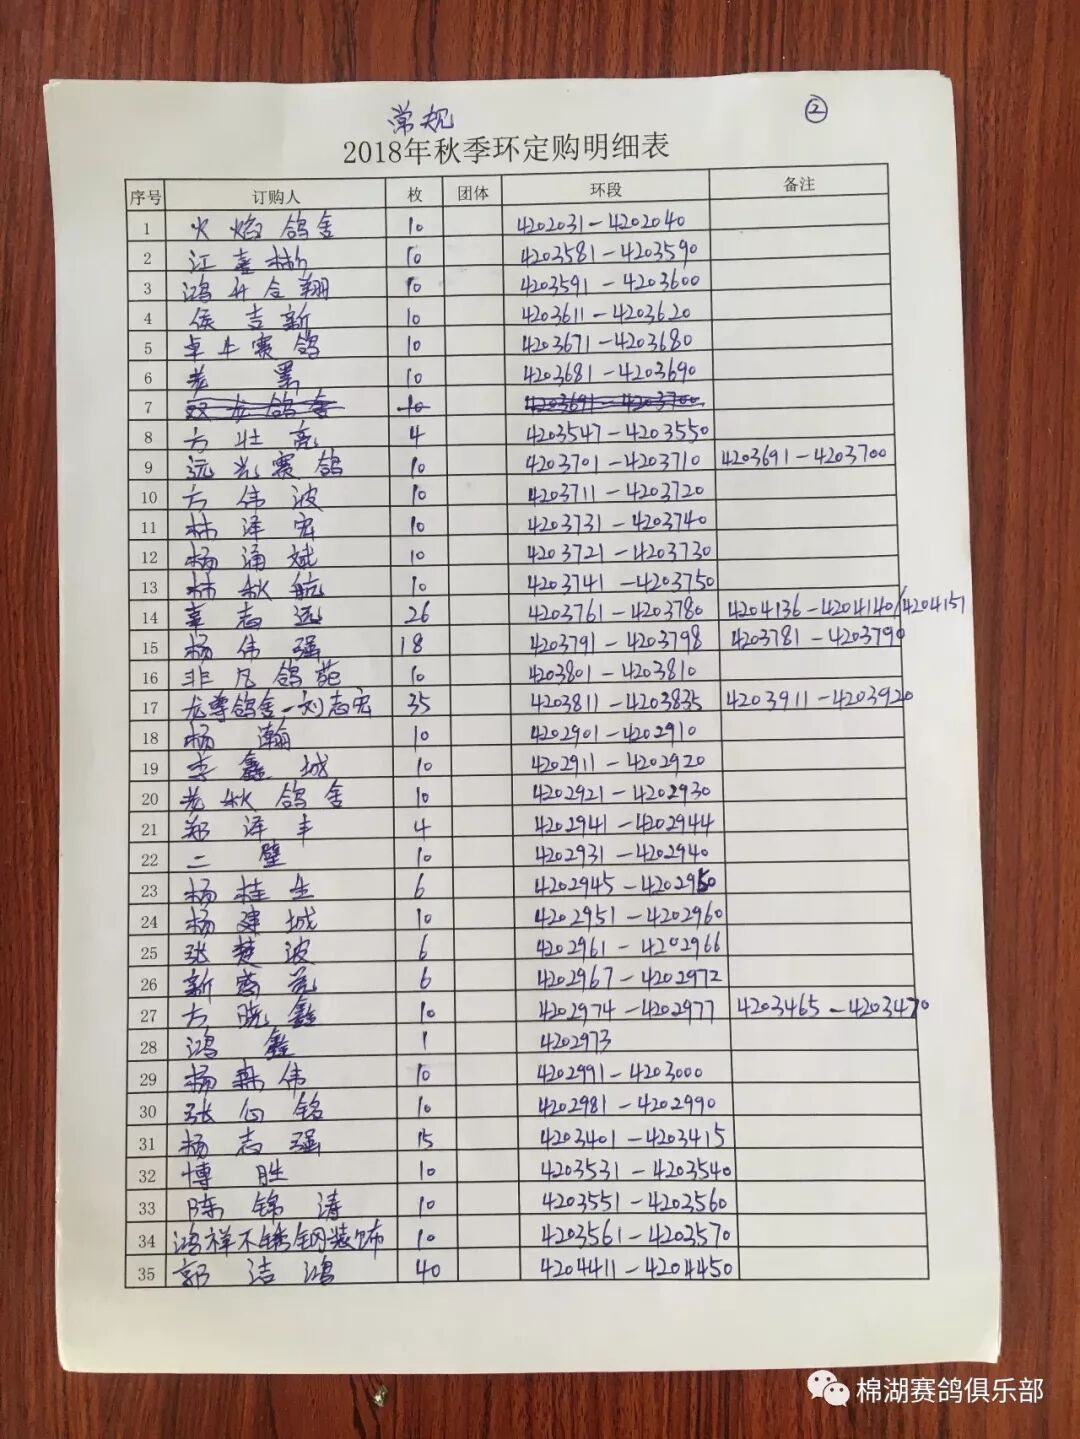 常规
②
2018年秋季环定购明细表
序号 订购人 枚 团体 环段 备注
1 火焰鸽舍 10 4202031-4202040
2 江喜彬 10 4203581-4203590
3 鸿升合翔 10 4203591-4203600
4 侯吉新 10 4203611-4203620
5 卓上赛鸽 10 4203671-4203680
6 老黑 10 4203681-4203690
7 双龙鸽舍 10 4203691-4203700
8 方壮亮 4 4203547-4203550
9 远兴赛鸽 10 4203701-4203710 4203691-4203700
10 方伟波 10 4203711-4203720
11 林泽宏 10 4203731-4203740
12 杨涌斌 10 4203721-4203730
13 林秋航 10 4203741-4203750
14 辜志远 26 4203761-4203780 4204136-4204140/4204151
15 杨伟强 18 4203791-4203798 4203781-4203790
16 非凡鸽苑 10 4203801-4203810
17 龙尊鸽舍-刘志宏 35 4203811-4203835 4203911-4203920
18 杨瀚 10 4202901-4202910
19 李鑫城 10 4202911-4202920
20 老秋鸽舍 10 4202921-4202930
21 郑泽丰 4 4202941-4202944
22 二壁 10 4202931-4202940
23 杨桂生 6 4202945-4202950
24 杨建城 10 4202951-4202960
25 张楚波 6 4202961-4202966
26 新 6 4202967-4202972
27 方晓鑫 10 4202974-4202977 4203465-4203470
28 鸿鑫 1 4202973
29 杨森伟 10 4202991-4203000
30 张伯铭 10 4202981-4202990
31 杨志强 15 4203401-4203415
32 博胜 10 4203531-4203540
33 陈锦涛 10 4203551-4203560
34 鸿祥不锈钢装饰 10 4203561-4203570
35 郭洁鸿 40 4204411-4204450
棉湖赛鸽俱乐部